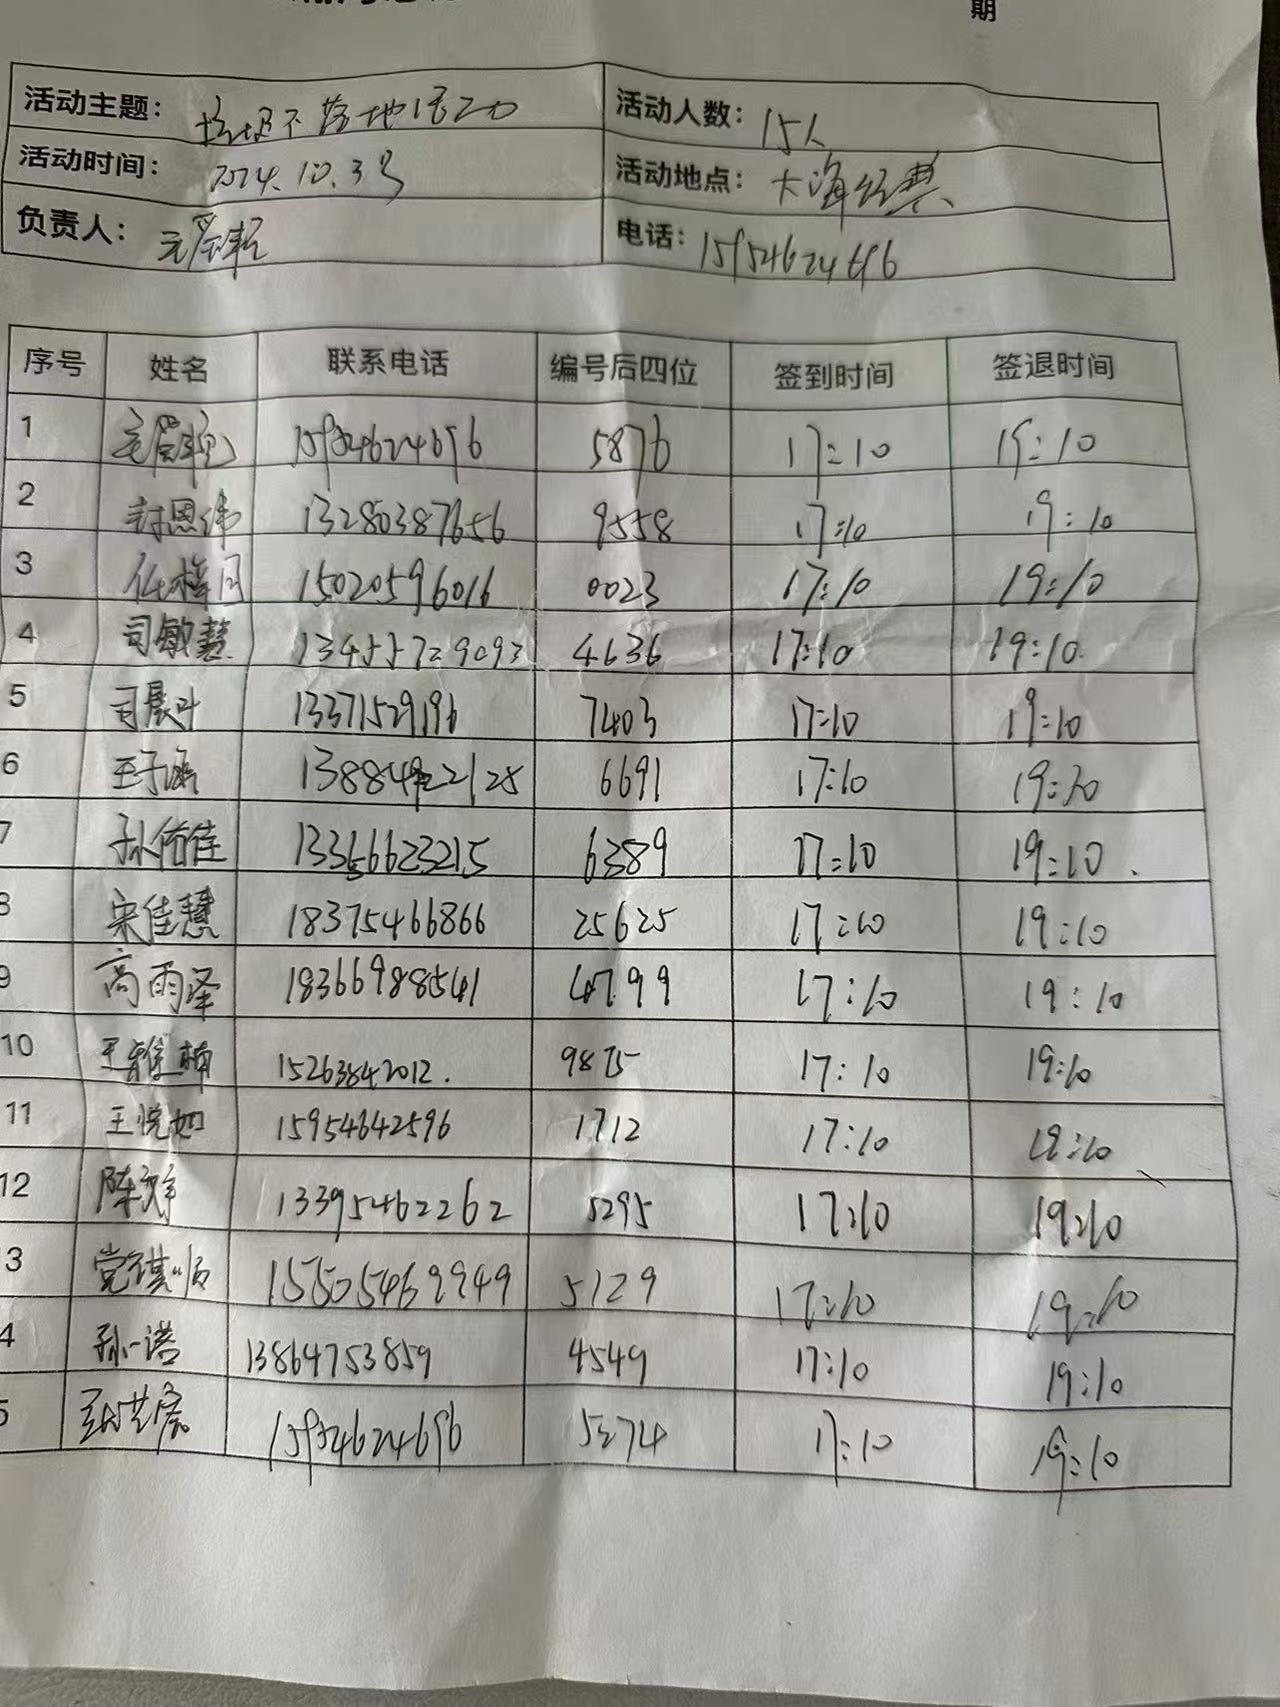 期
活动主题: 垃圾不落地活动 活动人数: 15人
活动时间: 2024.10.3号 活动地点: 大海经典
负责人: 电话: 15954624696
序号 姓名 联系电话 编号后四位 签到时间 签退时间
1 15954624696 5876 17:10 19:10
2 封恩纬 13280387656 9558 17:10 19:10
3 15020596016 0023 17:10 19:10
4 司敏慧 13455729093 4636 17:10 19:10
5 司晨叶 13371529196 7403 17:10 19:10
6 王子涵 6691 17:10 19:30
7 孙佑佳 13356623215 6389 17:10 19:10
8 宋佳慧 18375466866 25625 17:10 19:10
9 高雨泽 18366988541 4799 17:10 19:10
10 王雅楠 15263842012. 9875 17:10 19:10
11 王悦如 15954642596 1712 17:10 19:10
12 13395462262 5295 17:10 19:10
3 15505469949 5129 17:10 19:10
4 孙一诺 13864753859 4549 17:10 19:10
5 15954624696 5274 17:10 19:10